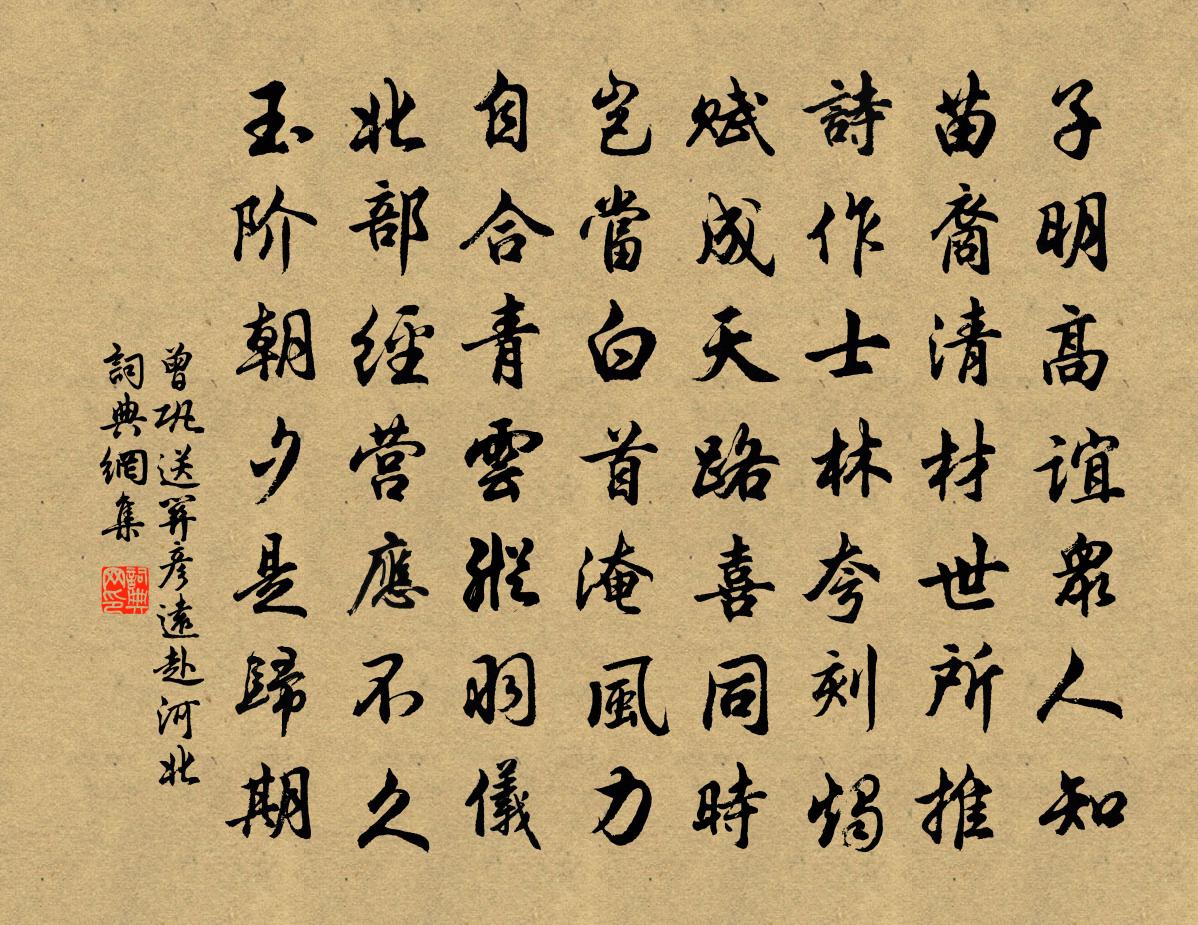 子明高誼衆人知
苗裔清材世所推
詩作士林夸刻燭
賦成天路喜同時
岂當白首淹風力
自合青雲縱羽儀
北部經营應不久
玉阶朝夕是歸期
曾巩送關彦遠赴河北
詞典網集
詞典网印